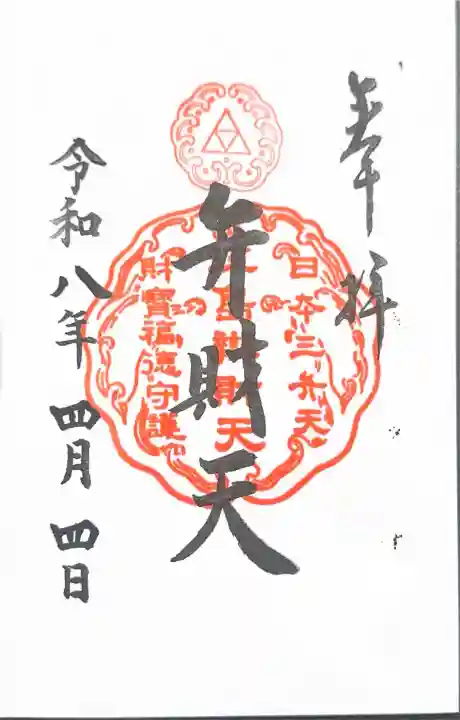 奉拝
日本三弁天
弁財天
財寶福徳守護
令和八年 四月 四日